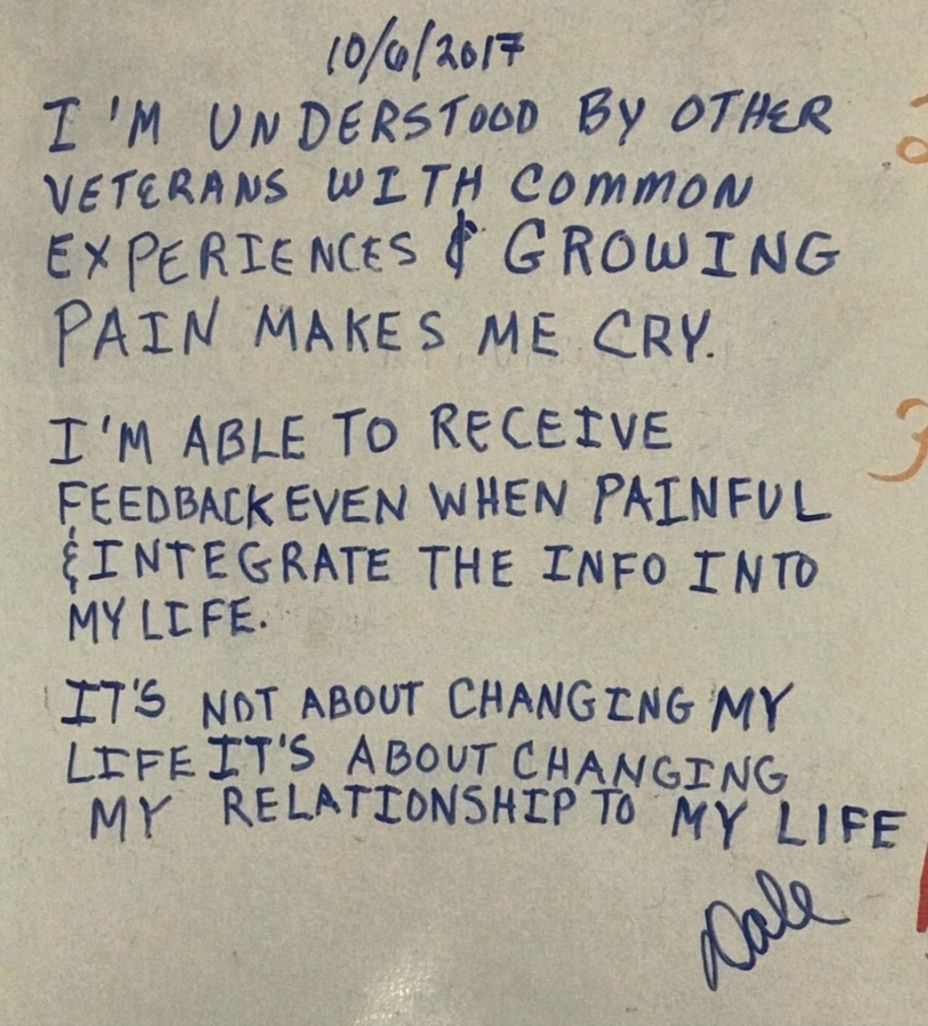 10/6/2017
I'M UNDERSTOOD BY OTHER
VETERANS WITH COMMON
EXPERIENCES & GROWING
PAIN MAKES ME CRY.
I'M ABLE TO RECEIVE
FEEDBACK EVEN WHEN PAINFUL
& INTEGRATE THE INFO INTO
MY LIFE.
IT'S NOT ABOUT CHANGING MY
LIFE IT'S ABOUT CHANGING
MY RELATIONSHIP TO MY LIFE
Dale
3